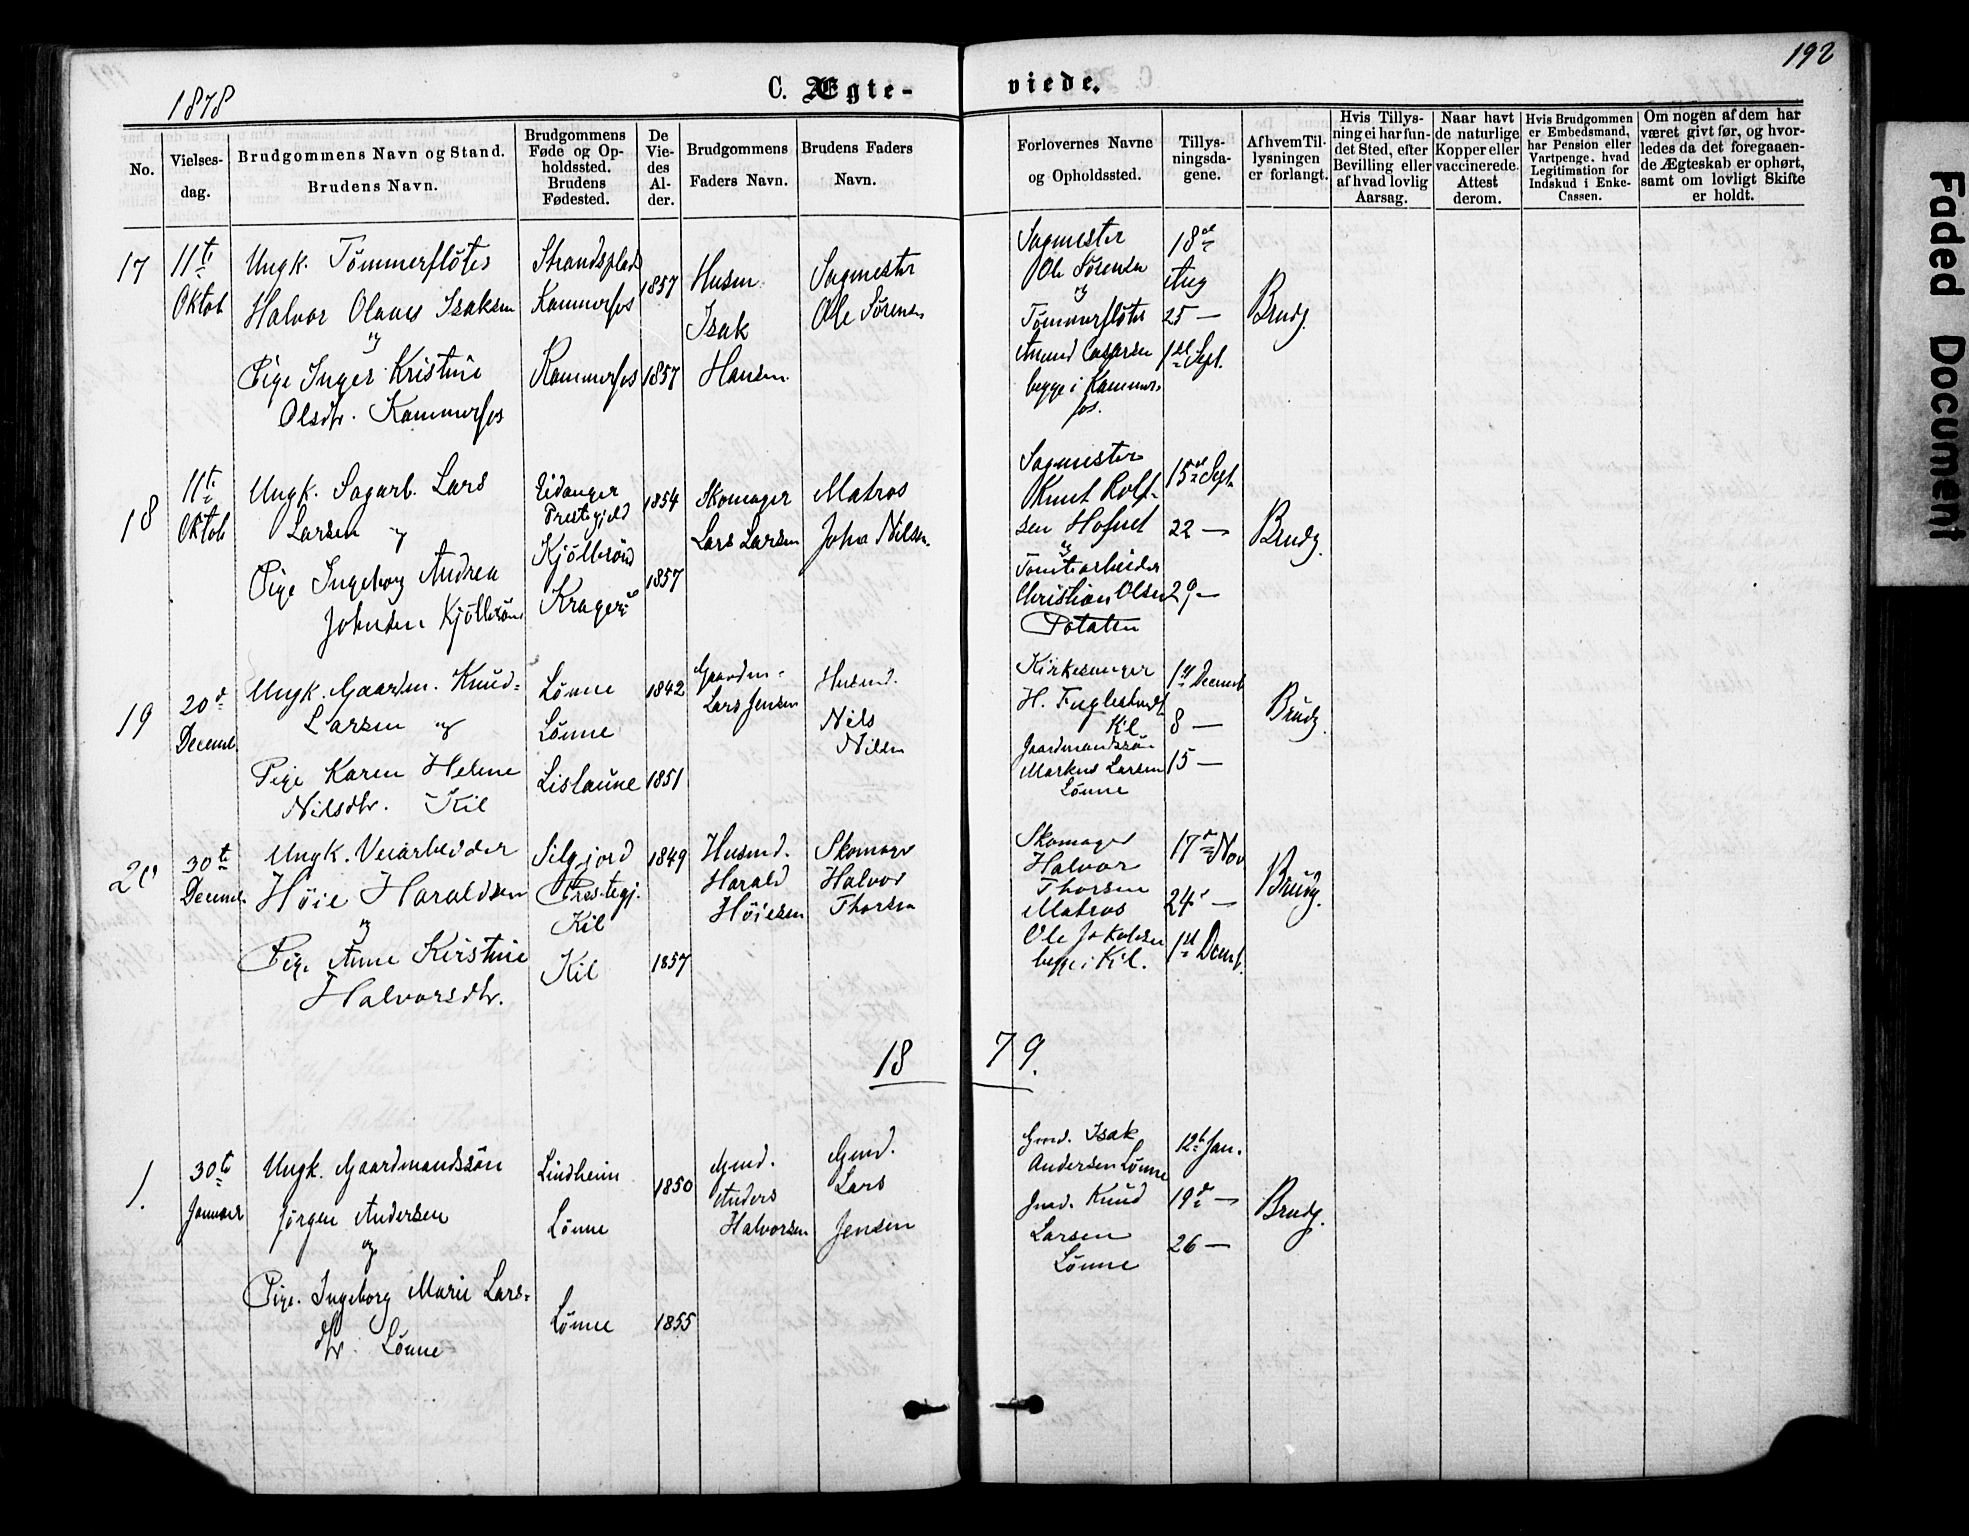 192
1878
C. Ægte-
viede.
No.
Vielses-
dag.
Brudgommens Navn og Stand.
Brudens Navn.
Brudgommens
Føde og Op-
holdssted.
Brudens
Fødested.
De
Vie-
des
Al-
der.
Brudgommens
Faders Navn.
Brudens Faders
Navn.
Forlovernes Navne
og Opholdssted.
Tillys-
ningsda-
gene.
Af hvem Til-
lysningen
er forlangt.
Hvis Tillys-
ning ei har fun-
det Sted, efter
Bevilling eller
af hvad lovlig
Aarsag.
Naar havt
de naturlige
Kopper eller
vaccinerede.
Attest
derom.
Hvis Brudgommen
er Embedsmand,
har Pension eller
Vartpenge, hvad
Legitimation for
Indskud i Enke-
Cassen.
Om nogen af dem har
været givt før, og hvor-
ledes da det foregaaen-
de Ægteskab er ophørt,
samt om lovligt Skifte
er holdt.
17
11te
Oktob
Ungk. Tømmerfløter
Halvor Olaus Isaksen
og
Pige Inger Kristine
Olsdtr. Kammerfos
Strandsplads
Kammerfos
Kammerfos
1857
1857
Husm.
Isak
Hansen
Sagmester
Ole Sørensen
Sagmester
Ole Sørensen
og
Tømmerfløter
begge i Kammer-
fos.
18de
Aug
25 —
1ste Sept.
Brudg.
18
11te
Oktob
Ungk. Sagarb. Lars
Larsen og
Pige Ingeborg Andrea
Johnsen Kjølbrønd
Eidanger
Prestegjeld
Kjølbrønd
Kragerø
1854
1857
Skomager
Lars Larsen
Matros
John Nilsen.
Sagmester
Knut Rolf-
sen Hofmet
og
Tomtearbeider
Christian Olsen
Potaten
15de Sept.
22 —
29 —
Brudg.
19
20de
Decemb.
Ungk. Gaardm. Knud
Larsen og
Pige Karen Helene
Nilsdtr. Kil
Lønne
Lønne
Lislaune
1842
1851
Gaardm.
Lars Jensen
Husmd.
Nils
Nilsen
Kirkesanger
H. Fuglestvedt
Kil
Gaardmandssøn
Markus Larsen
Lønne
1ste Decemb
8 —
15 —
Brudg.
20
30te
Decemb.
Ungk. Veiarbeider
Høie Haraldsen
og
Pige Anne Kirstine
Halvorsdtr.
Silgjord
Prestegj.
Kil
Kil
1849
1857
Husmd.
Harald
Høiesen
Skomager
Halvor
Thorsen
Skomager
Halvor
Thorsen
Matros
Ole Jakobsen
begge i Kil.
17de Nov
24de —
1ste Decmb.
Brudg.
18 79.
1.
30te
Januar
Ungk. Gaardmandssøn
Jørgen Andersen
og
Pige. Ingeborg Marie Lars-
dtr. Lønne
Lindheim
Lønne
Lønne
1850
1855
Gmd.
Anders
Halvorsen
Gmd.
Lars
Jensen
Gmd. Isak
Andersen Lønne
Gmd. Knud
Larsen
Lønne
12te Jan.
19de —
26 —
Brudg.
Faded Document